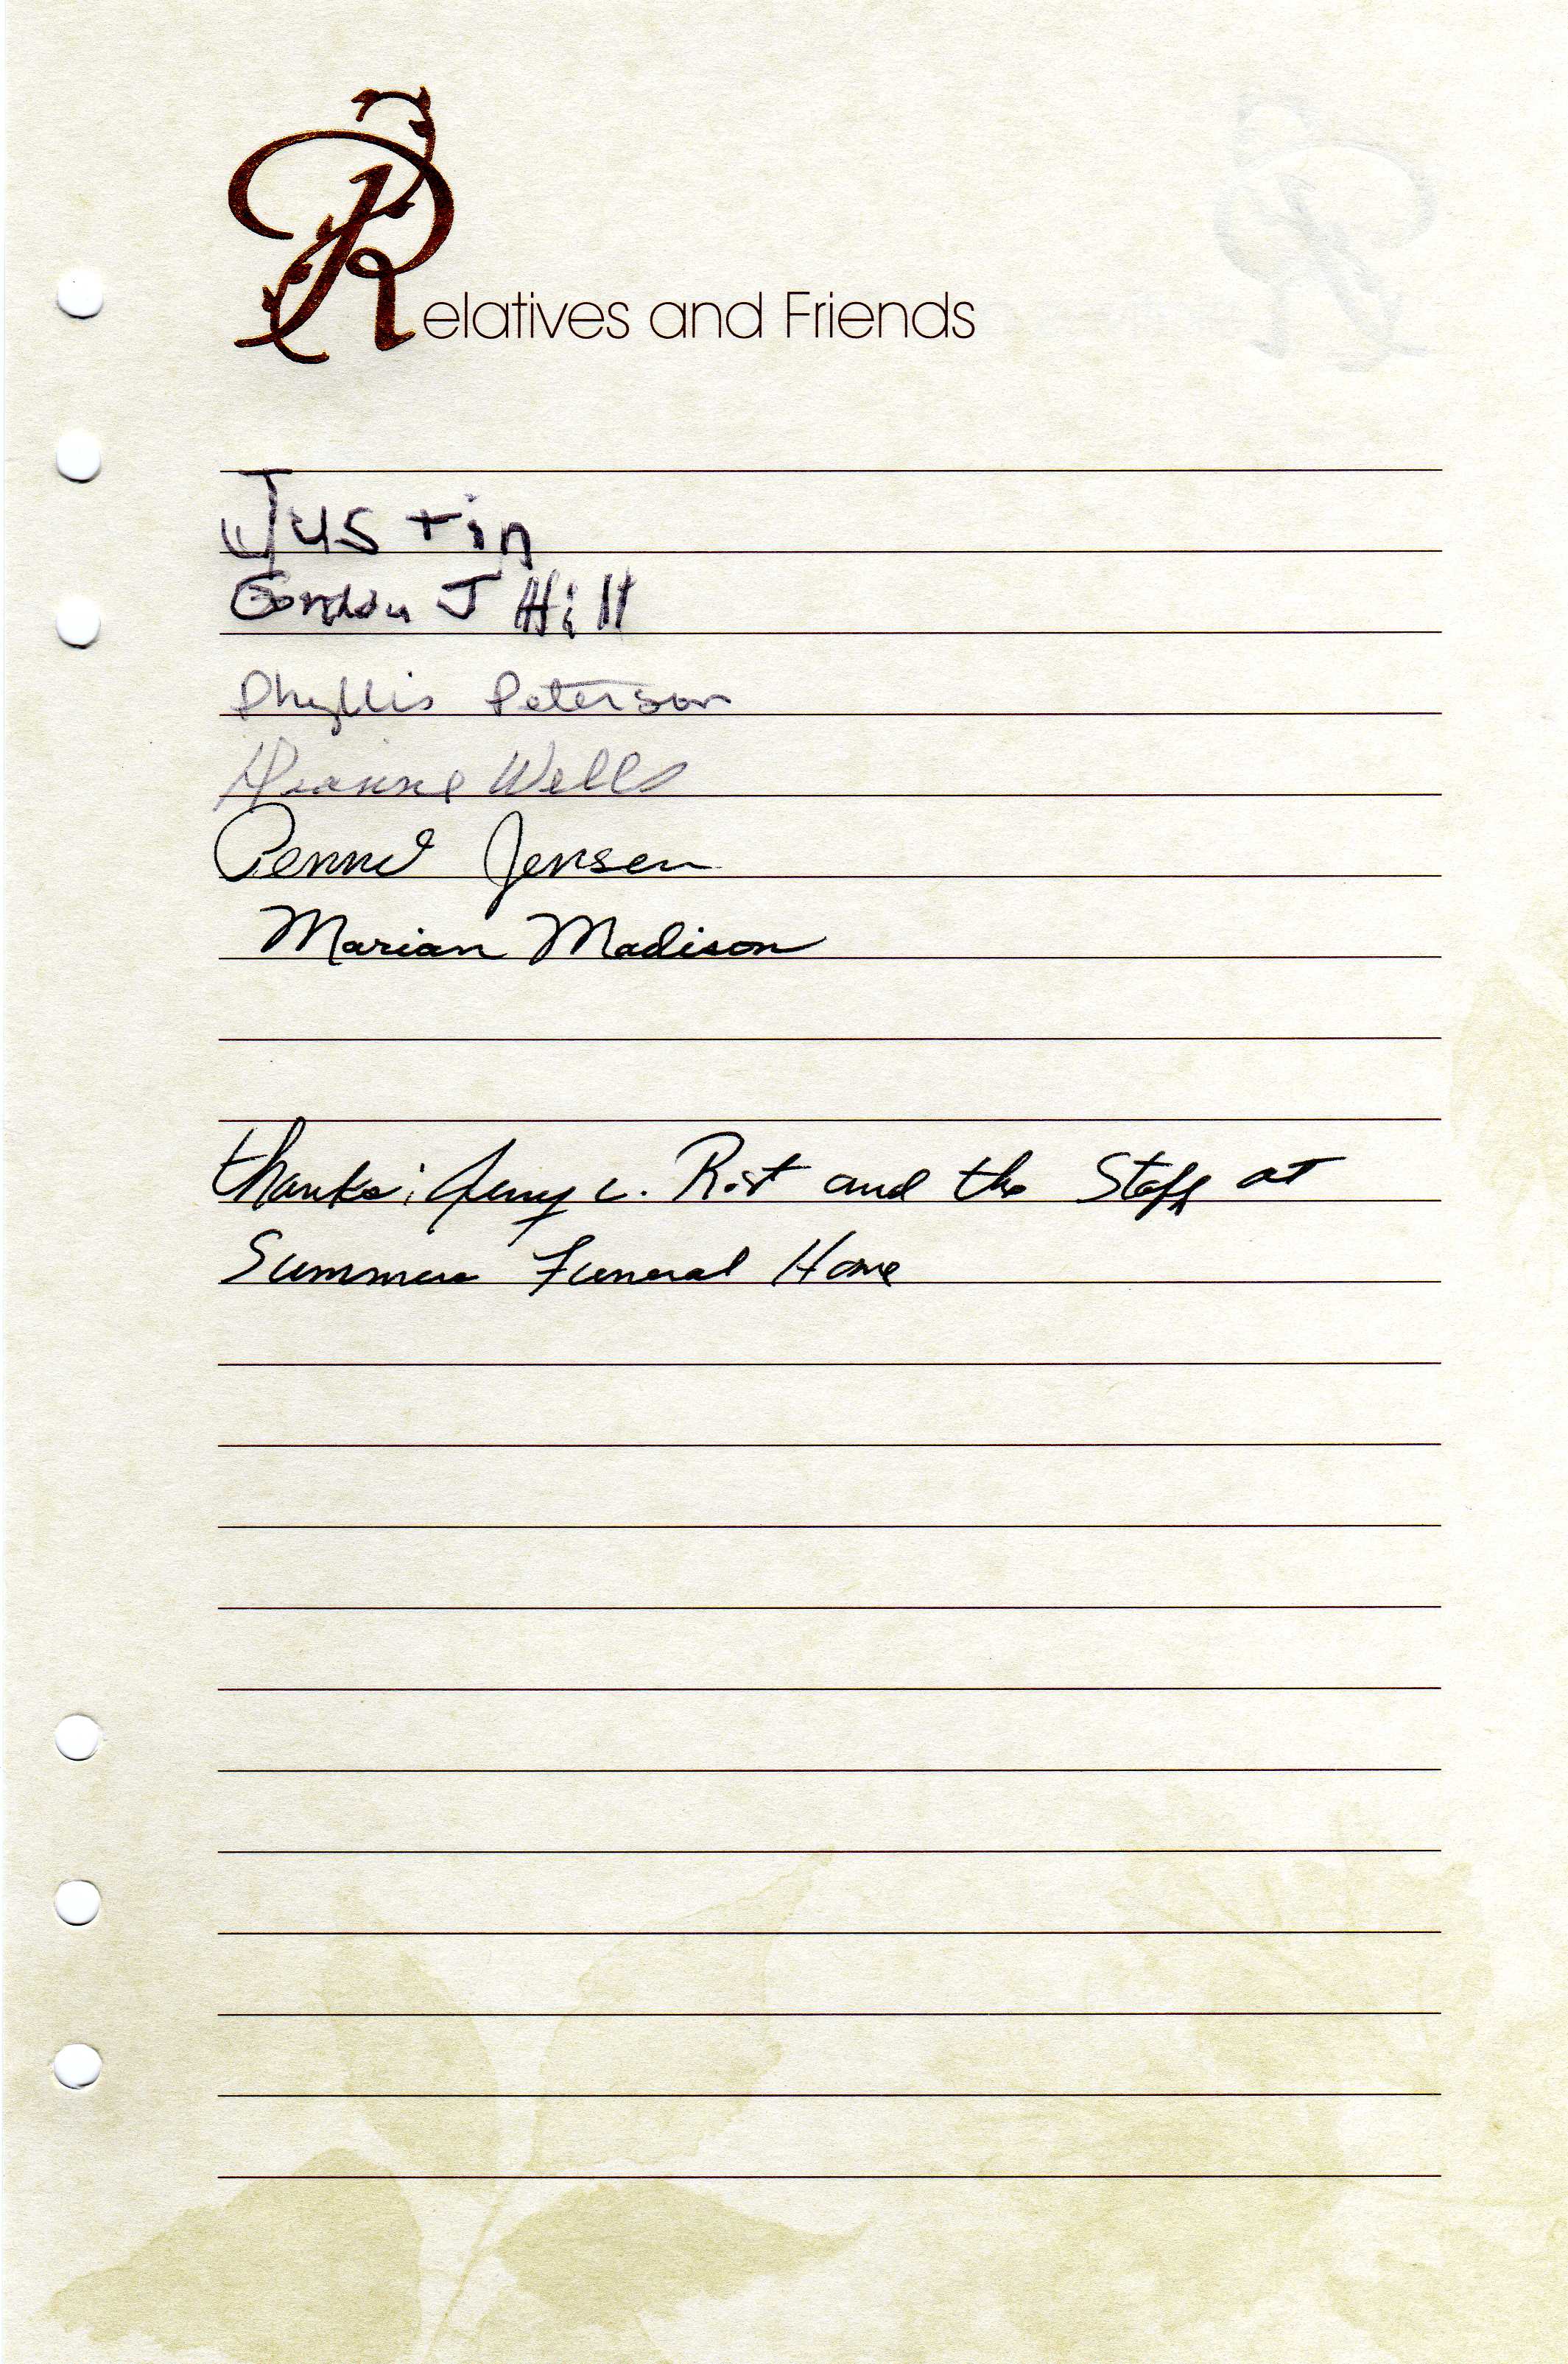 Relatives and Friends
Justin
Gordon J Hill
Phyllis Peterson
Dianne Wells
Jensen
Marian Madison
thanks; Jerry C. Rist and the Staff at
Summers Funeral Home